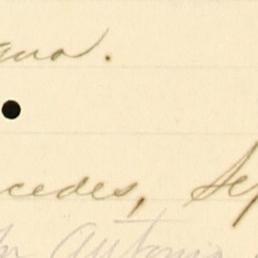 gua.
cedes, Sep
Antonio